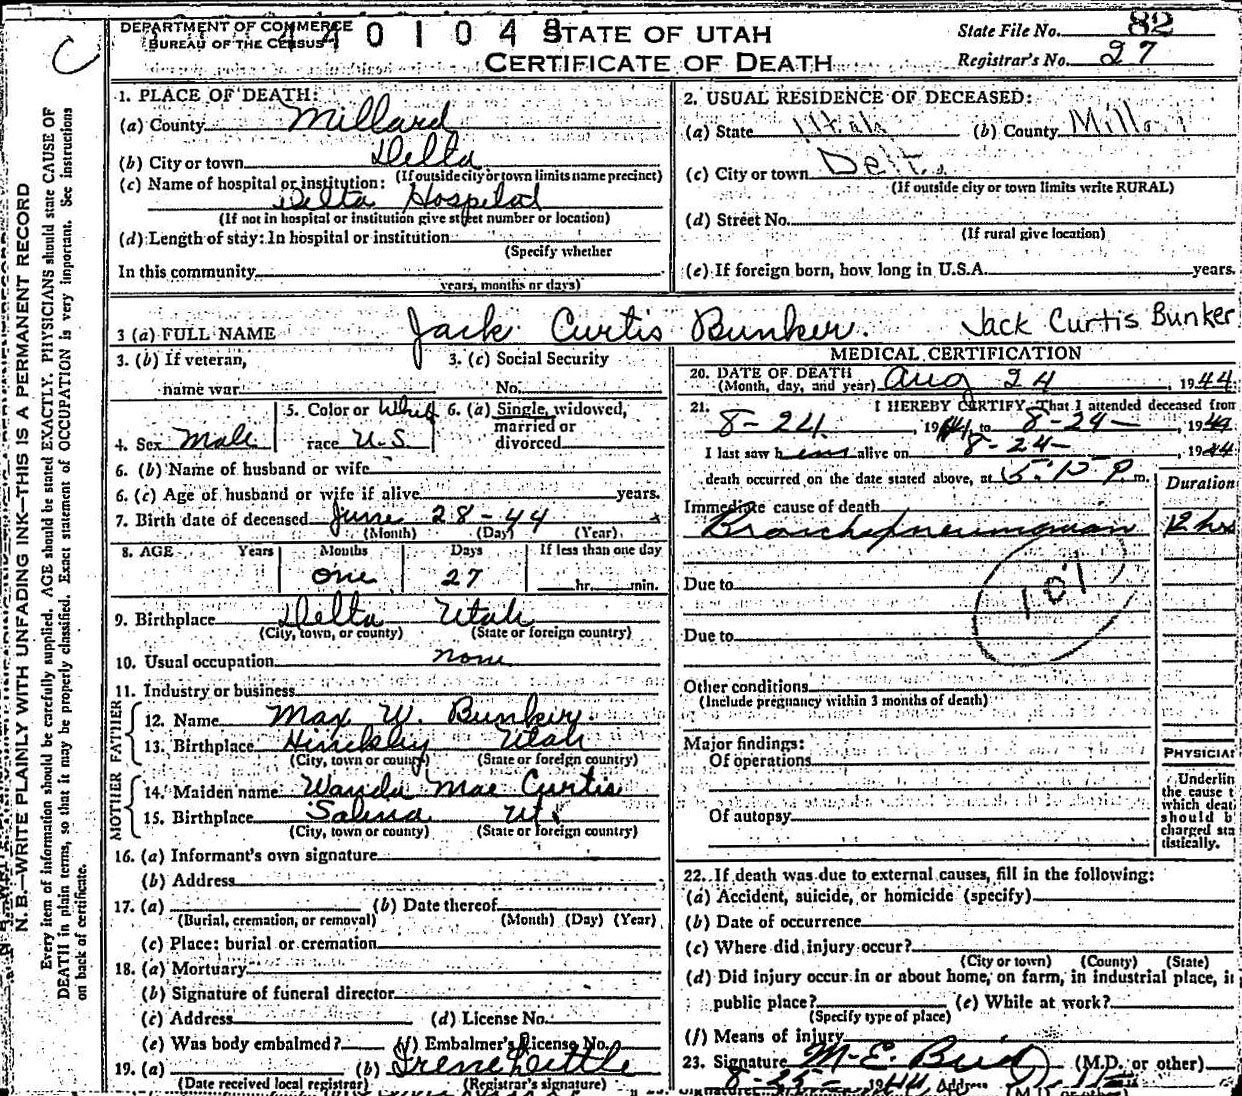 DEPARTMENT OF COMMERCE
BUREAU OF THE CENSUS
4401048
STATE OF UTAH
CERTIFICATE OF DEATH
State File No. 82
Registrar's No. 27
C
N.B.—WRITE PLAINLY WITH UNFADING INK—THIS IS A PERMANENT RECORD
Every item of information should be carefully supplied. AGE should be stated EXACTLY. PHYSICIANS should state CAUSE OF
DEATH in plain terms, so that it may be properly classified. Exact statement of OCCUPATION is very important. See instructions
on back of certificate.
1. PLACE OF DEATH:
(a) County Millard
(b) City or town Delta
(If outside city or town limits name precinct)
(c) Name of hospital or institution:
Delta Hospital
(If not in hospital or institution give street number or location)
(d) Length of stay: In hospital or institution
(Specify whether
In this community
years, months or days)
2. USUAL RESIDENCE OF DECEASED:
(a) State Utah (b) County Millard
(c) City or town Delta
(If outside city or town limits write RURAL)
(d) Street No.
(If rural give location)
(e) If foreign born, how long in U.S.A. years.
3 (a) FULL NAME Jack Curtis Bunker. Jack Curtis Bunker
3. (b) If veteran,
name war
3. (c) Social Security
No.
4. Sex Male
5. Color or White
race U.S.
6. (a) Single, widowed,
married or
divorced
6. (b) Name of husband or wife
6. (c) Age of husband or wife if alive years.
7. Birth date of deceased June 28-44
(Month) (Day) (Year)
8. AGE Years Months Days If less than one day
one 27 hr. min.
9. Birthplace Delta Utah
(City, town, or county) (State or foreign country)
10. Usual occupation none
11. Industry or business
FATHER
12. Name Max W. Bunker.
13. Birthplace Hinckley Utah
(City, town or county) (State or foreign country)
MOTHER
14. Maiden name Wanda Mae Curtis
15. Birthplace Salina Ut.
(City, town or county) (State or foreign country)
16. (a) Informant's own signature
(b) Address
17. (a) (b) Date thereof
(Burial, cremation, or removal) (Month) (Day) (Year)
(c) Place: burial or cremation
18. (a) Mortuary
(b) Signature of funeral director
(c) Address (d) License No.
(e) Was body embalmed? (f) Embalmer's License No.
19. (a) (b) Irene Little
(Date received local registrar) (Registrar's signature)
MEDICAL CERTIFICATION
20. DATE OF DEATH
(Month, day, and year) Aug 24, 1944
21. I HEREBY CERTIFY, That I attended deceased from
8-24, 1944, to 8-24-, 1944
I last saw him alive on 8-24-, 1944
death occurred on the date stated above, at 5:15 P. m.
Duration
Immediate cause of death
Bronchopneumonia 12 hrs
107
Due to
Due to
Other conditions
(Include pregnancy within 3 months of death)
Major findings:
Of operations
Of autopsy
PHYSICIAN
Underlin
the cause t
which deat
should b
charged sta
tistically.
22. If death was due to external causes, fill in the following:
(a) Accident, suicide, or homicide (specify)
(b) Date of occurrence
(c) Where did injury occur?
(City or town) (County) (State)
(d) Did injury occur in or about home, on farm, in industrial place, in
public place? (e) While at work?
(Specify type of place)
(f) Means of injury
23. Signature M-E. Bird (M.D. or other)
8-25- 1944 Address